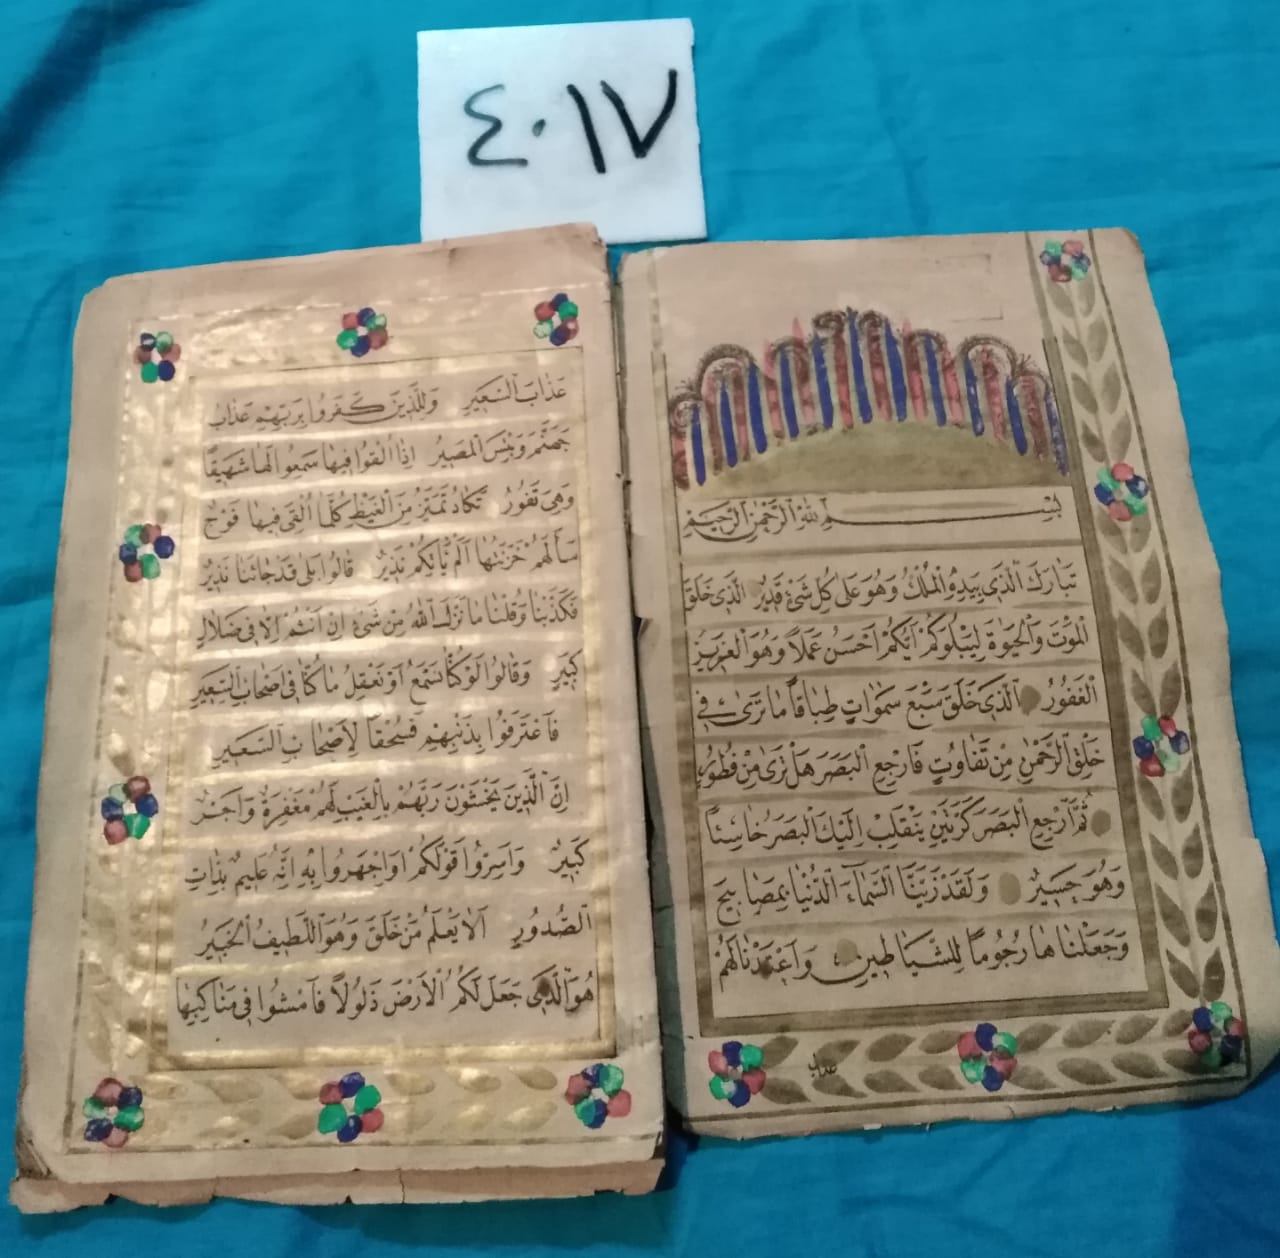 ٤٠١٧
بِسْمِ اللهِ الرَّحْمٰنِ الرَّحِيمِ
تَبَارَكَ الَّذِي بِيَدِهِ الْمُلْكُ وَهُوَ عَلَى كُلِّ شَيْءٍ قَدِيرٌ الَّذِي خَلَقَ
الْمَوْتَ وَالْحَيٰوةَ لِيَبْلُوَكُمْ اَيُّكُمْ اَحْسَنُ عَمَلًا وَهُوَ الْعَزِيزُ
الْغَفُورُ الَّذِي خَلَقَ سَبْعَ سَمٰوَاتٍ طِبَاقًا مَا تَرٰى فِي
خَلْقِ الرَّحْمٰنِ مِنْ تَفَاوُتٍ فَارْجِعِ الْبَصَرَ هَلْ تَرٰى مِنْ فُطُورٍ
ثُمَّ ارْجِعِ الْبَصَرَ كَرَّتَيْنِ يَنْقَلِبْ اِلَيْكَ الْبَصَرُ خَاسِئًا
وَهُوَ حَسِيرٌ وَلَقَدْ زَيَّنَّا السَّمَآءَ الدُّنْيَا بِمَصَابِيحَ
وَجَعَلْنَاهَا رُجُومًا لِلشَّيَاطِينِ وَاَعْتَدْنَا لَهُمْ
عذاب
عَذَابَ السَّعِيرِ وَلِلَّذِينَ كَفَرُوا بِرَبِّهِمْ عَذَابُ
جَهَنَّمَ وَبِئْسَ الْمَصِيرُ اِذَا اُلْقُوا فِيهَا سَمِعُوا لَهَا شَهِيقًا
وَهِيَ تَفُورُ تَكَادُ تَمَيَّزُ مِنَ الْغَيْظِ كُلَّمَا اُلْقِيَ فِيهَا فَوْجٌ
سَاَلَهُمْ خَزَنَتُهَا اَلَمْ يَاْتِكُمْ نَذِيرٌ قَالُوا بَلٰى قَدْ جَائَنَا نَذِيرٌ
فَكَذَّبْنَا وَقُلْنَا مَا نَزَّلَ اللهُ مِنْ شَيْءٍ اِنْ اَنْتُمْ اِلَّا فِي ضَلَالٍ
كَبِيرٍ وَقَالُوا لَوْ كُنَّا نَسْمَعُ اَوْ نَعْقِلُ مَا كُنَّا فِي اَصْحَابِ السَّعِيرِ
فَاعْتَرَفُوا بِذَنْبِهِمْ فَسُحْقًا لِاَصْحَابِ السَّعِيرِ
اِنَّ الَّذِينَ يَخْشَوْنَ رَبَّهُمْ بِالْغَيْبِ لَهُمْ مَغْفِرَةٌ وَاَجْرٌ
كَبِيرٌ وَاَسِرُّوا قَوْلَكُمْ اَوِ اجْهَرُوا بِهِ اِنَّهُ عَلِيمٌ بِذَاتِ
الصُّدُورِ اَلَا يَعْلَمُ مَنْ خَلَقَ وَهُوَ اللَّطِيفُ الْخَبِيرُ
هُوَ الَّذِي جَعَلَ لَكُمُ الْاَرْضَ ذَلُولًا فَامْشُوا فِي مَنَاكِبِهَا